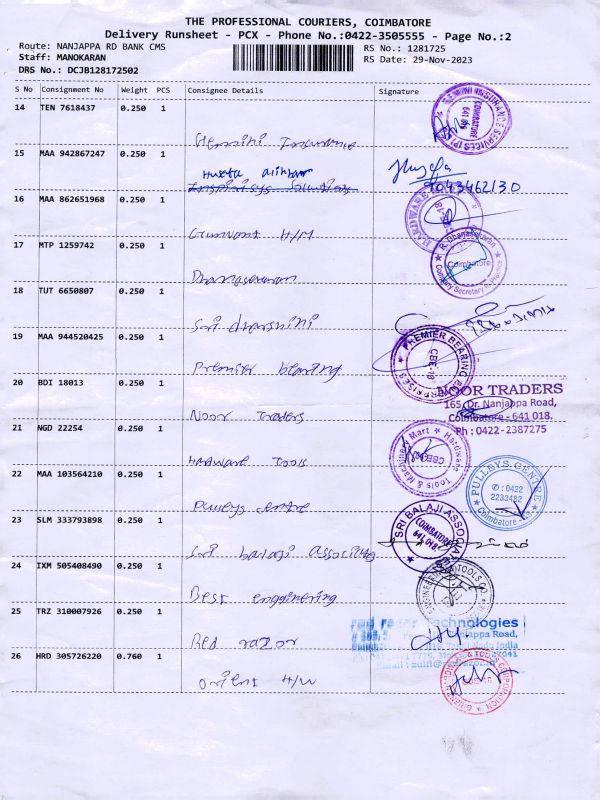 THE PROFESSIONAL COURIERS, COIMBATORE
Delivery Runsheet - PCX - Phone No.:0422-3505555 - Page No.:2
Route: NANJAPPA RD BANK CMS
RS No.: 1281725
Staff: MANOKARAN
RS Date: 29-Nov-2023
DRS No.: DCJB128172502
S No Consignment No Weight PCS Consignee Details Signature
14 TEN 7618437 0.250 1
Gemini Insurance
COIMBATORE
15 MAA 942867247 0.250 1
9043462130
16 MAA 862651968 0.250 1
HARDWARE
H/M
17 MTP 1259742 0.250 1
R. Dhanasekaran
Coimbatore
Company Secretary in Practice
Dhanasekaran
18 TUT 6650807 0.250 1
Sri dharshini
19 MAA 944520425 0.250 1
PREMIER BEARING ENTERPRISES
CBE-18
Premier bearing
20 BDI 18013 0.250 1
NOOR TRADERS
165, Dr. Nanjappa Road,
Coimbatore - 641 018.
Ph : 0422-2387275
Noor Traders
21 NGD 22254 0.250 1
Hardware Tools & Machinery Mart
Hardware Tools
22 MAA 103564210 0.250 1
PULLSYS CENTRE
✆ : 0422
2233482
Coimbatore
Pulleys centre
23 SLM 333793898 0.250 1
SRI BALAJI ASSOCIATES
COIMBATORE
641 018
Sri balaji Associates
24 IXM 505408490 0.250 1
Best engginering
25 TRZ 310007926 0.250 1
red razor technologies
Nanjappa Road,
Tamil Nadu India
Red razor
26 HRD 305726220 0.760 1
orient H/W